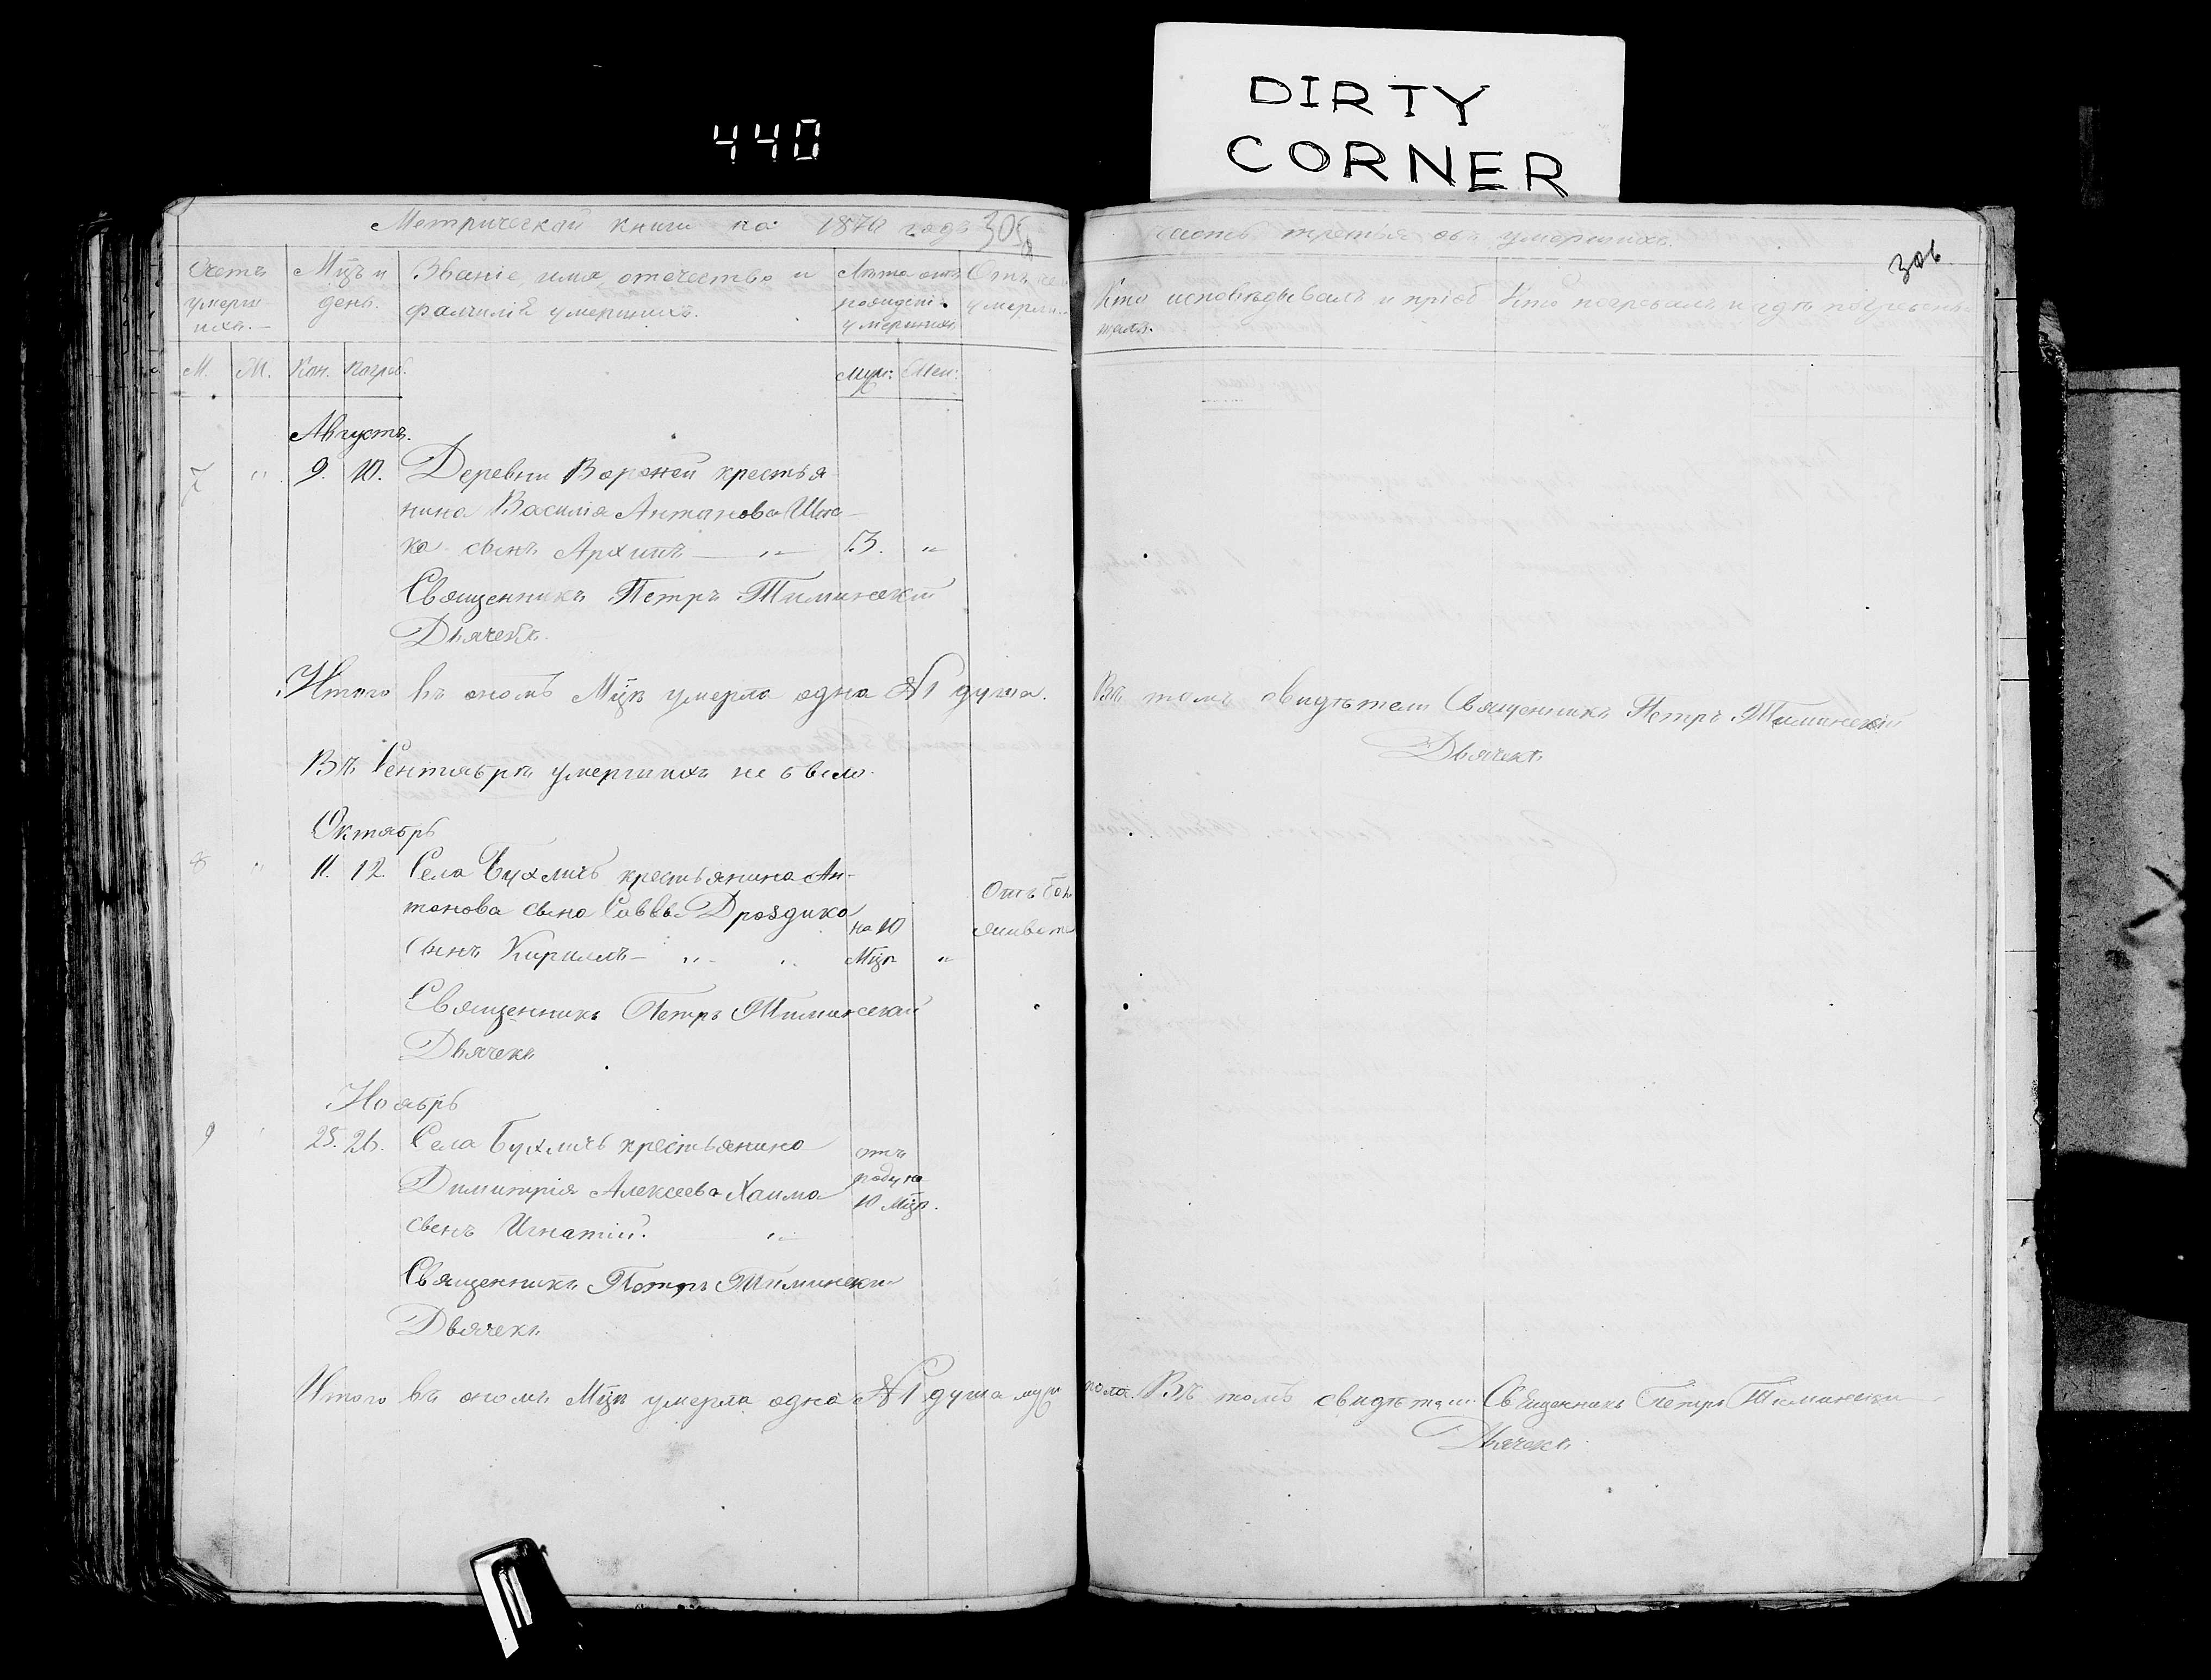 440
DIRTY
CORNER
Метрической книги на 1870 годъ 305
Счетъ умерших.
Мцъ и день.
Званіе, имя, отечество и фамилія умершихъ.
Лѣта отъ умершихъ
Отъ чего умерли
М. М. Кон. Погреб. Муж: Жен:
Августъ.
7 " 9. 10. Деревни Вороней крестья
нина Василія Антонова
ка сынъ Архипъ — " — 13. "
Священникъ Петръ Тиминскій
Дьячекъ
Итого въ ономъ Мцѣ умерла одна № 1 душа.
Въ Сентябрѣ умершихъ не было.
Октябрь
8 " 11. 12. Села Бухличь крестьянина Ан-
тонова сына Саввы Дроздика на 10
сынъ Кириллъ — " " Мцѣ "
Священникъ Петръ Тиминскій
Дьячекъ
Ноябрь
9 " 25. 26. Села Бухличь крестьянина отъ
Димитрія Алексеева Хаима роду на
сынъ Игнатій. " 10 Мцѣ.
Священникъ Петръ Тиминскій
Дьячекъ
Итого въ ономъ Мцѣ умерла одна № 1 душа муж
часть третья объ умершихъ.
306
Кто исповѣдывалъ и пріоб
щалъ.
Кто погребалъ и гдѣ погребены
Въ томъ свидѣтели Священникъ Петръ Тиминскій
Дьячекъ
пола. Въ томъ свидѣтели Священникъ Петръ Тиминскій
Дьячекъ